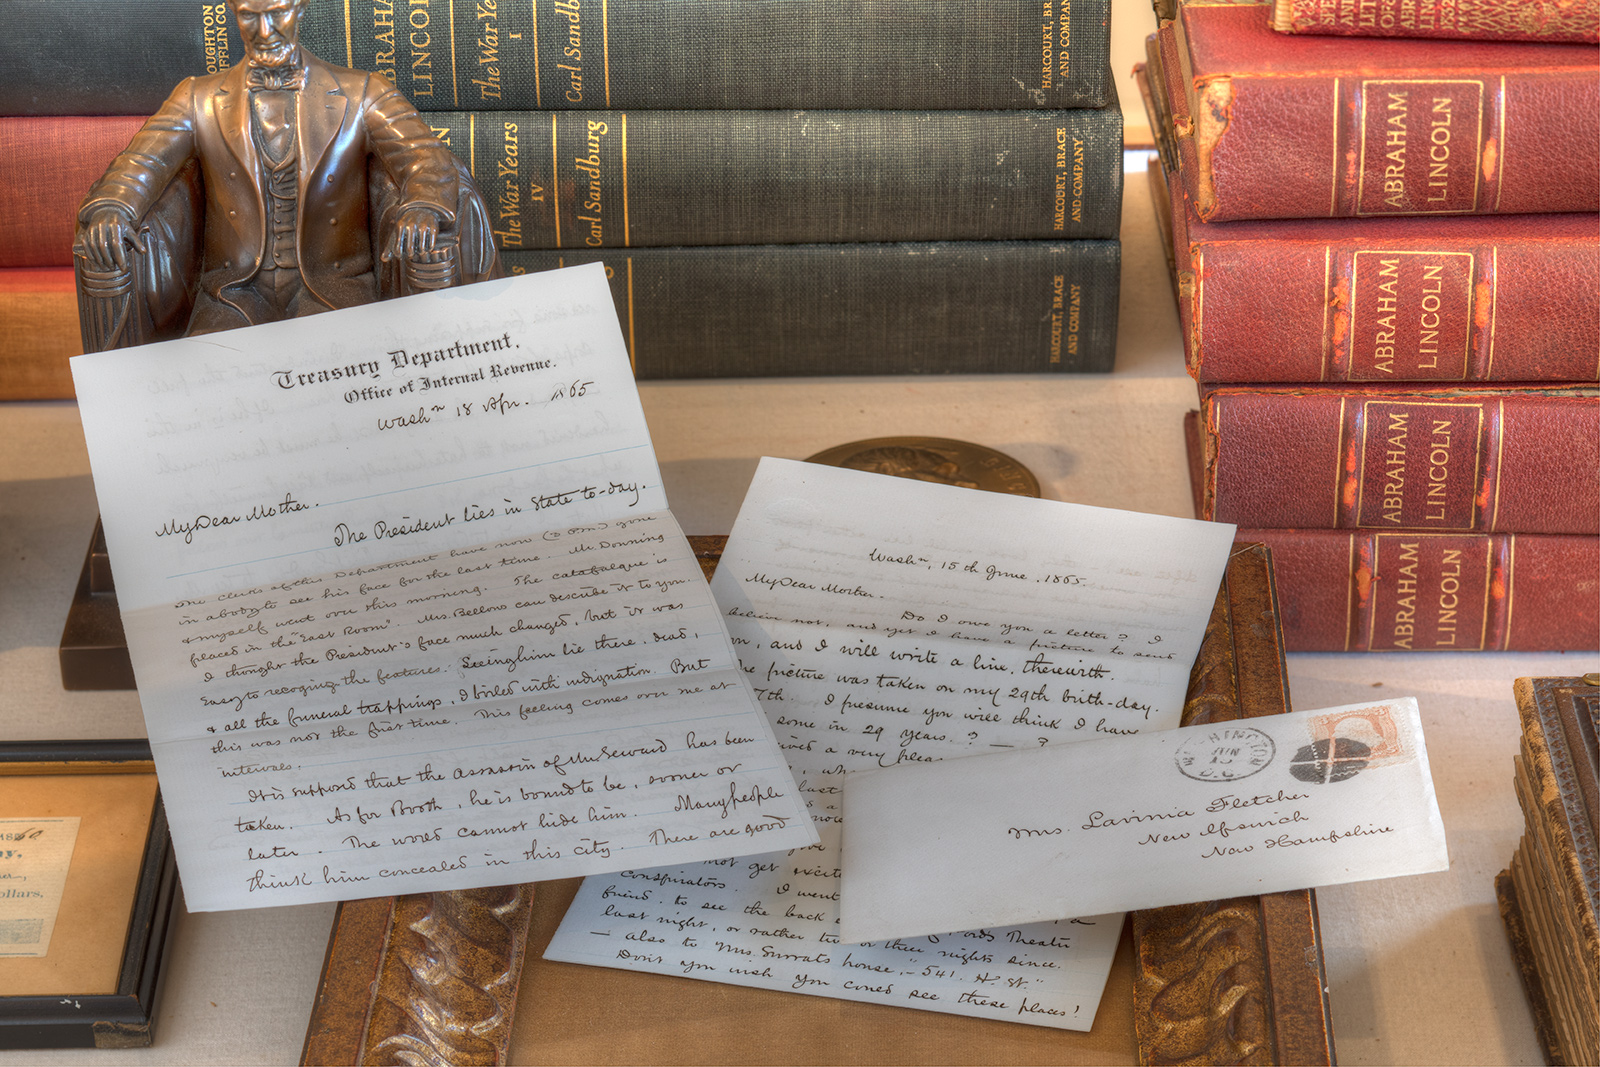 OUGHTON
IFFLIN CO.
ABRAHA
LINCOL
The War Ye
I
Carl Sandb
HARCOURT, BR
AND COMPA
N
The War Years
IV
Carl Sandburg
HARCOURT, BRACE
AND COMPANY
HARCOURT, BRACE
AND COMPANY
ABRAHAM
LINCOLN
ABRAHAM
LINCOLN
ABRAHAM
LINCOLN
ABRAHAM
LINCOLN
Treasury Department,
Office of Internal Revenue.
Washn 18 Apr. 1865
My Dear Mother.
The President lies in State to-day.
The clerks of this Department have now (3 P.m.) gone
in a body to see his face for the last time. Mr. Donning
& myself went over this morning. The catafalque is
placed in the "East Room". Mrs. Bellows can describe it to you.
I thought the President's face much changed, but it was
easy to recognize the features. Seeing him lie there, dead,
& all the funeral trappings, I boiled with indignation. But
this was not the first time. This feeling comes over me at
intervals.
It is supposed that the assassin of Mr Seward has been
taken. As for Booth, he is bound to be, sooner or
later. The world cannot hide him. Many people
think him concealed in this city. There are good
Washn, 15th June, 1865.
My Dear Mother.
Do I owe you a letter? I
believe not, and yet I have a picture to send
on, and I will write a line, therewith.
he picture was taken on my 29th birth-day.
7th. I presume you will think I have
some in 29 years.? — ?
ived a very pleas
last
a
not get excit
conspirators. I went
friend, to see the back
ords Theatre
last night, or rather two or three nights since.
— also to "Mrs. Surrats house," – 541. H. St."
Don't you wish you could see these places!
WASHINGTON
JUN
D.C.
Mrs. Lavinia Fletcher
New Ipswich
New Hampshire
ollars.